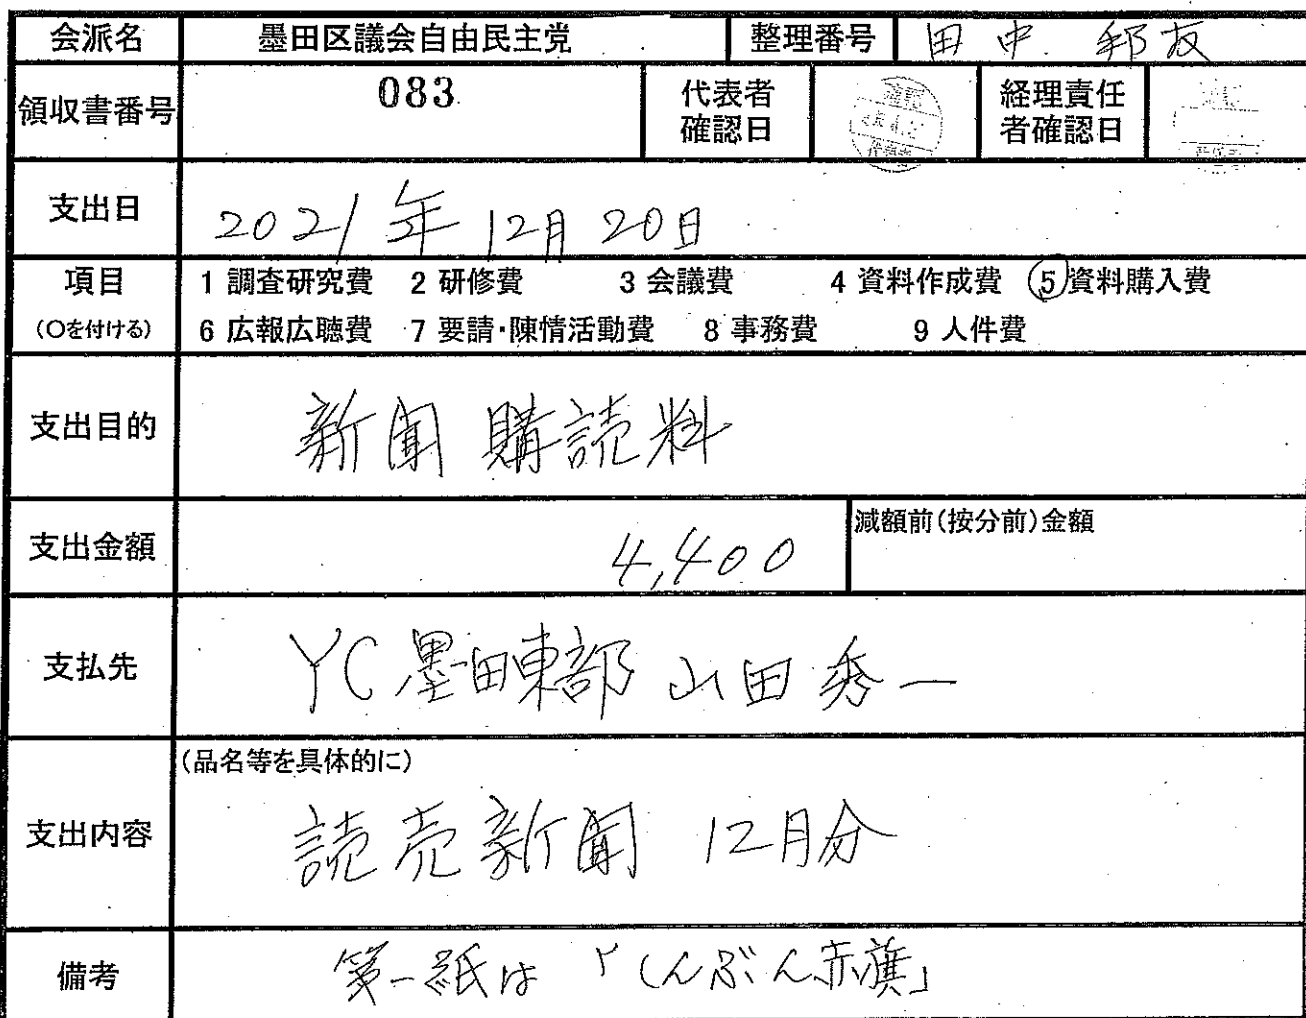 会派名 墨田区議会自由民主党 整理番号 田中 邦友
領収書番号 083 代表者確認日 経理責任者確認日
支出日 2021年12月20日
項目 1 調査研究費 2 研修費 3 会議費 4 資料作成費 5 資料購入費
(○を付ける) 6 広報広聴費 7 要請・陳情活動費 8 事務費 9 人件費
支出目的 新聞購読料
支出金額 4,400 減額前(按分前)金額
支払先 YC墨田東部 山田秀一
(品名等を具体的に)
支出内容 読売新聞 12月分
備考 第一紙は「しんぶん赤旗」